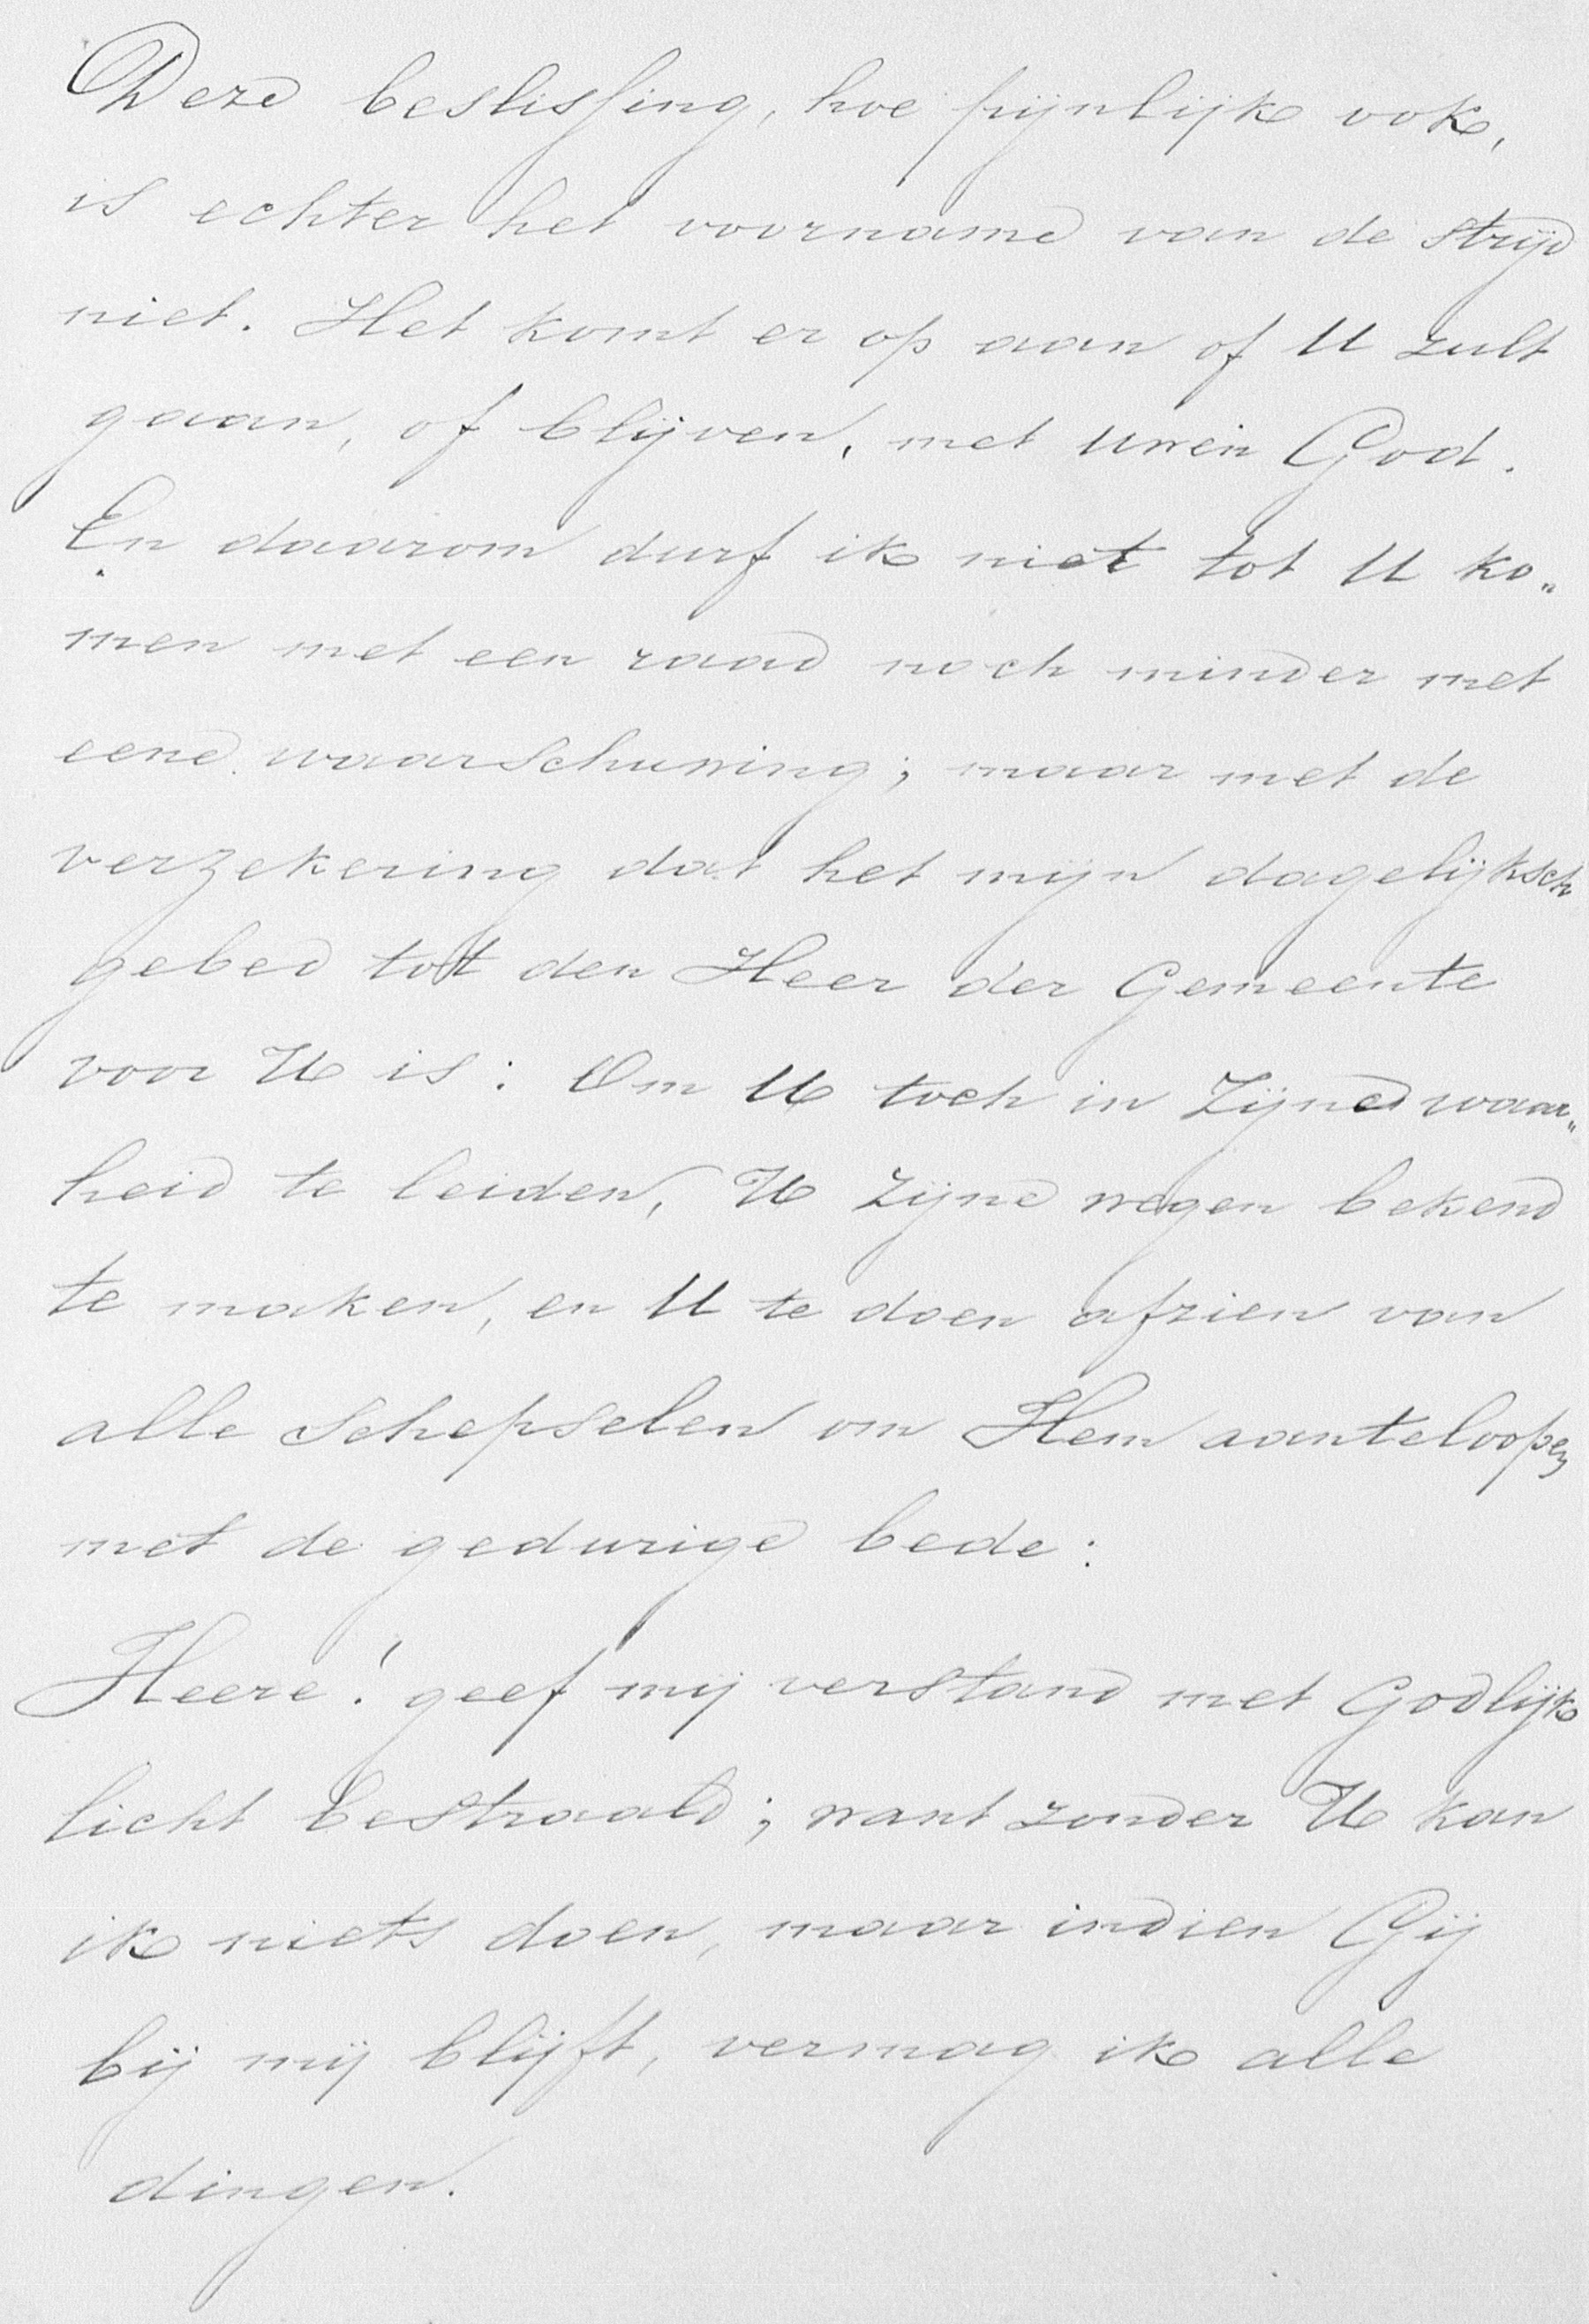 Deze beslissing, hoe pijnlijk ook,
is echter het voorname van de strijd
niet. Het komt er op aan of U zult
gaan, of blijven, met uwen God.
En daarom durf ik niet tot U ko„
men met een raad noch minder met
eene waarschuwing; maar met de
verzekering dat het mijn dagelijksch
gebed tot den Heer der Gemeente
voor U is: Om U toch in Zijne waar„
heid te leiden, U Zijne wegen bekend
te maken, en U te doen afzien van
alle schepselen om Hem aanteloopen
met de gedurige bede:
Heere! geef mij verstand met Godlijk
licht bestraald; want zonder U kan
ik niets doen, maar indien Gij
bij mij blijft, vermag ik alle
dingen.